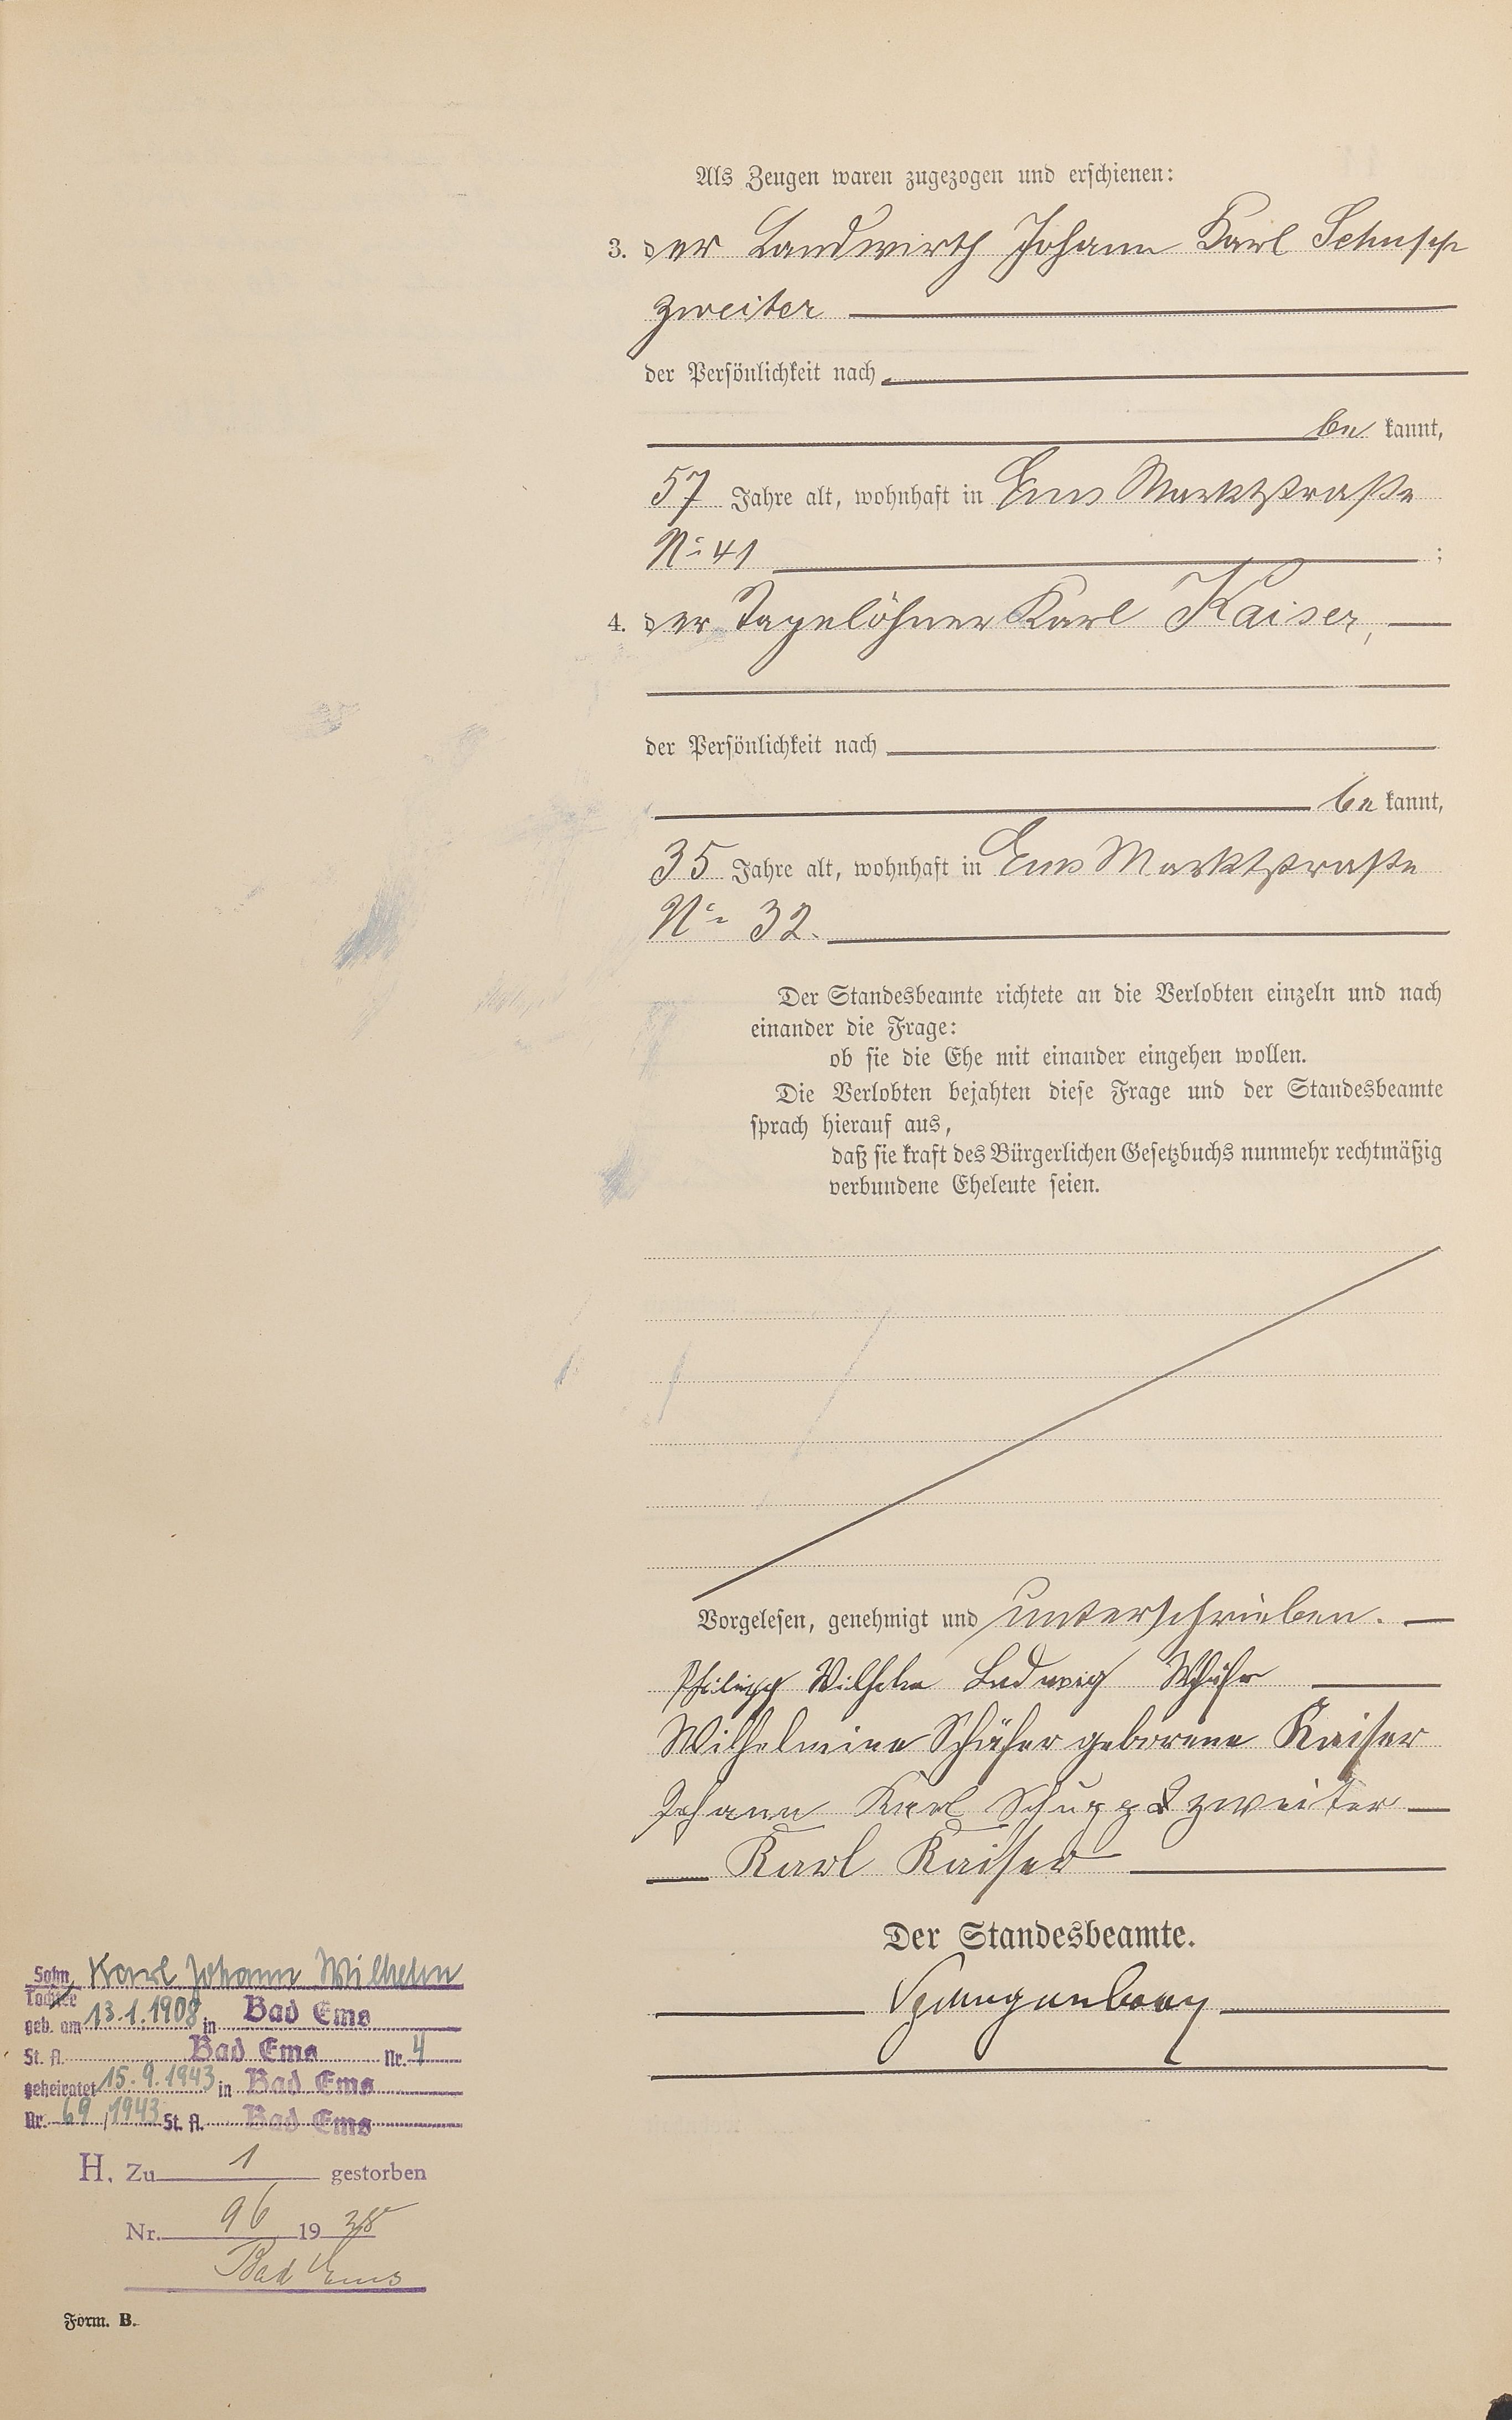 Als Zeugen waren zugezogen und erschienen:
3. der Landwirth Johann Karl Schupp
zweiter
der Persönlichkeit nach
be kannt,
57 Jahre alt, wohnhaft in Ems Marktstraße
No 41 ;
4. der Tagelöhner Karl Kaiser,
der Persönlichkeit nach
be kannt,
35 Jahre alt, wohnhaft in Ems Marktstraße
No 32.
Der Standesbeamte richtete an die Verlobten einzeln und nach
einander die Frage:
ob sie die Ehe mit einander eingehen wollen.
Die Verlobten bejahten diese Frage und der Standesbeamte
sprach hierauf aus,
daß sie kraft des Bürgerlichen Gesetzbuchs nunmehr rechtmäßig
verbundene Eheleute seien.
Vorgelesen, genehmigt und unterschrieben.
Philipp Wilhelm Ludwig Schäfer
Wilhelmine Schäfer geborene Kaiser
Johann Karl Schupp zweiter
Karl Kaiser
Der Standesbeamte.
Spangenberg
Sohn Karl Johann Wilhelm
Tochter
geb. am 13.1.1908 in Bad Ems
St. A. Bad Ems Nr. 4
geheiratet 15.9.1943 in Bad Ems
Nr. 69/1943 St. A. Bad Ems
H. Zu 1 gestorben
Nr. 96 1938
Bad Ems
Form. B.